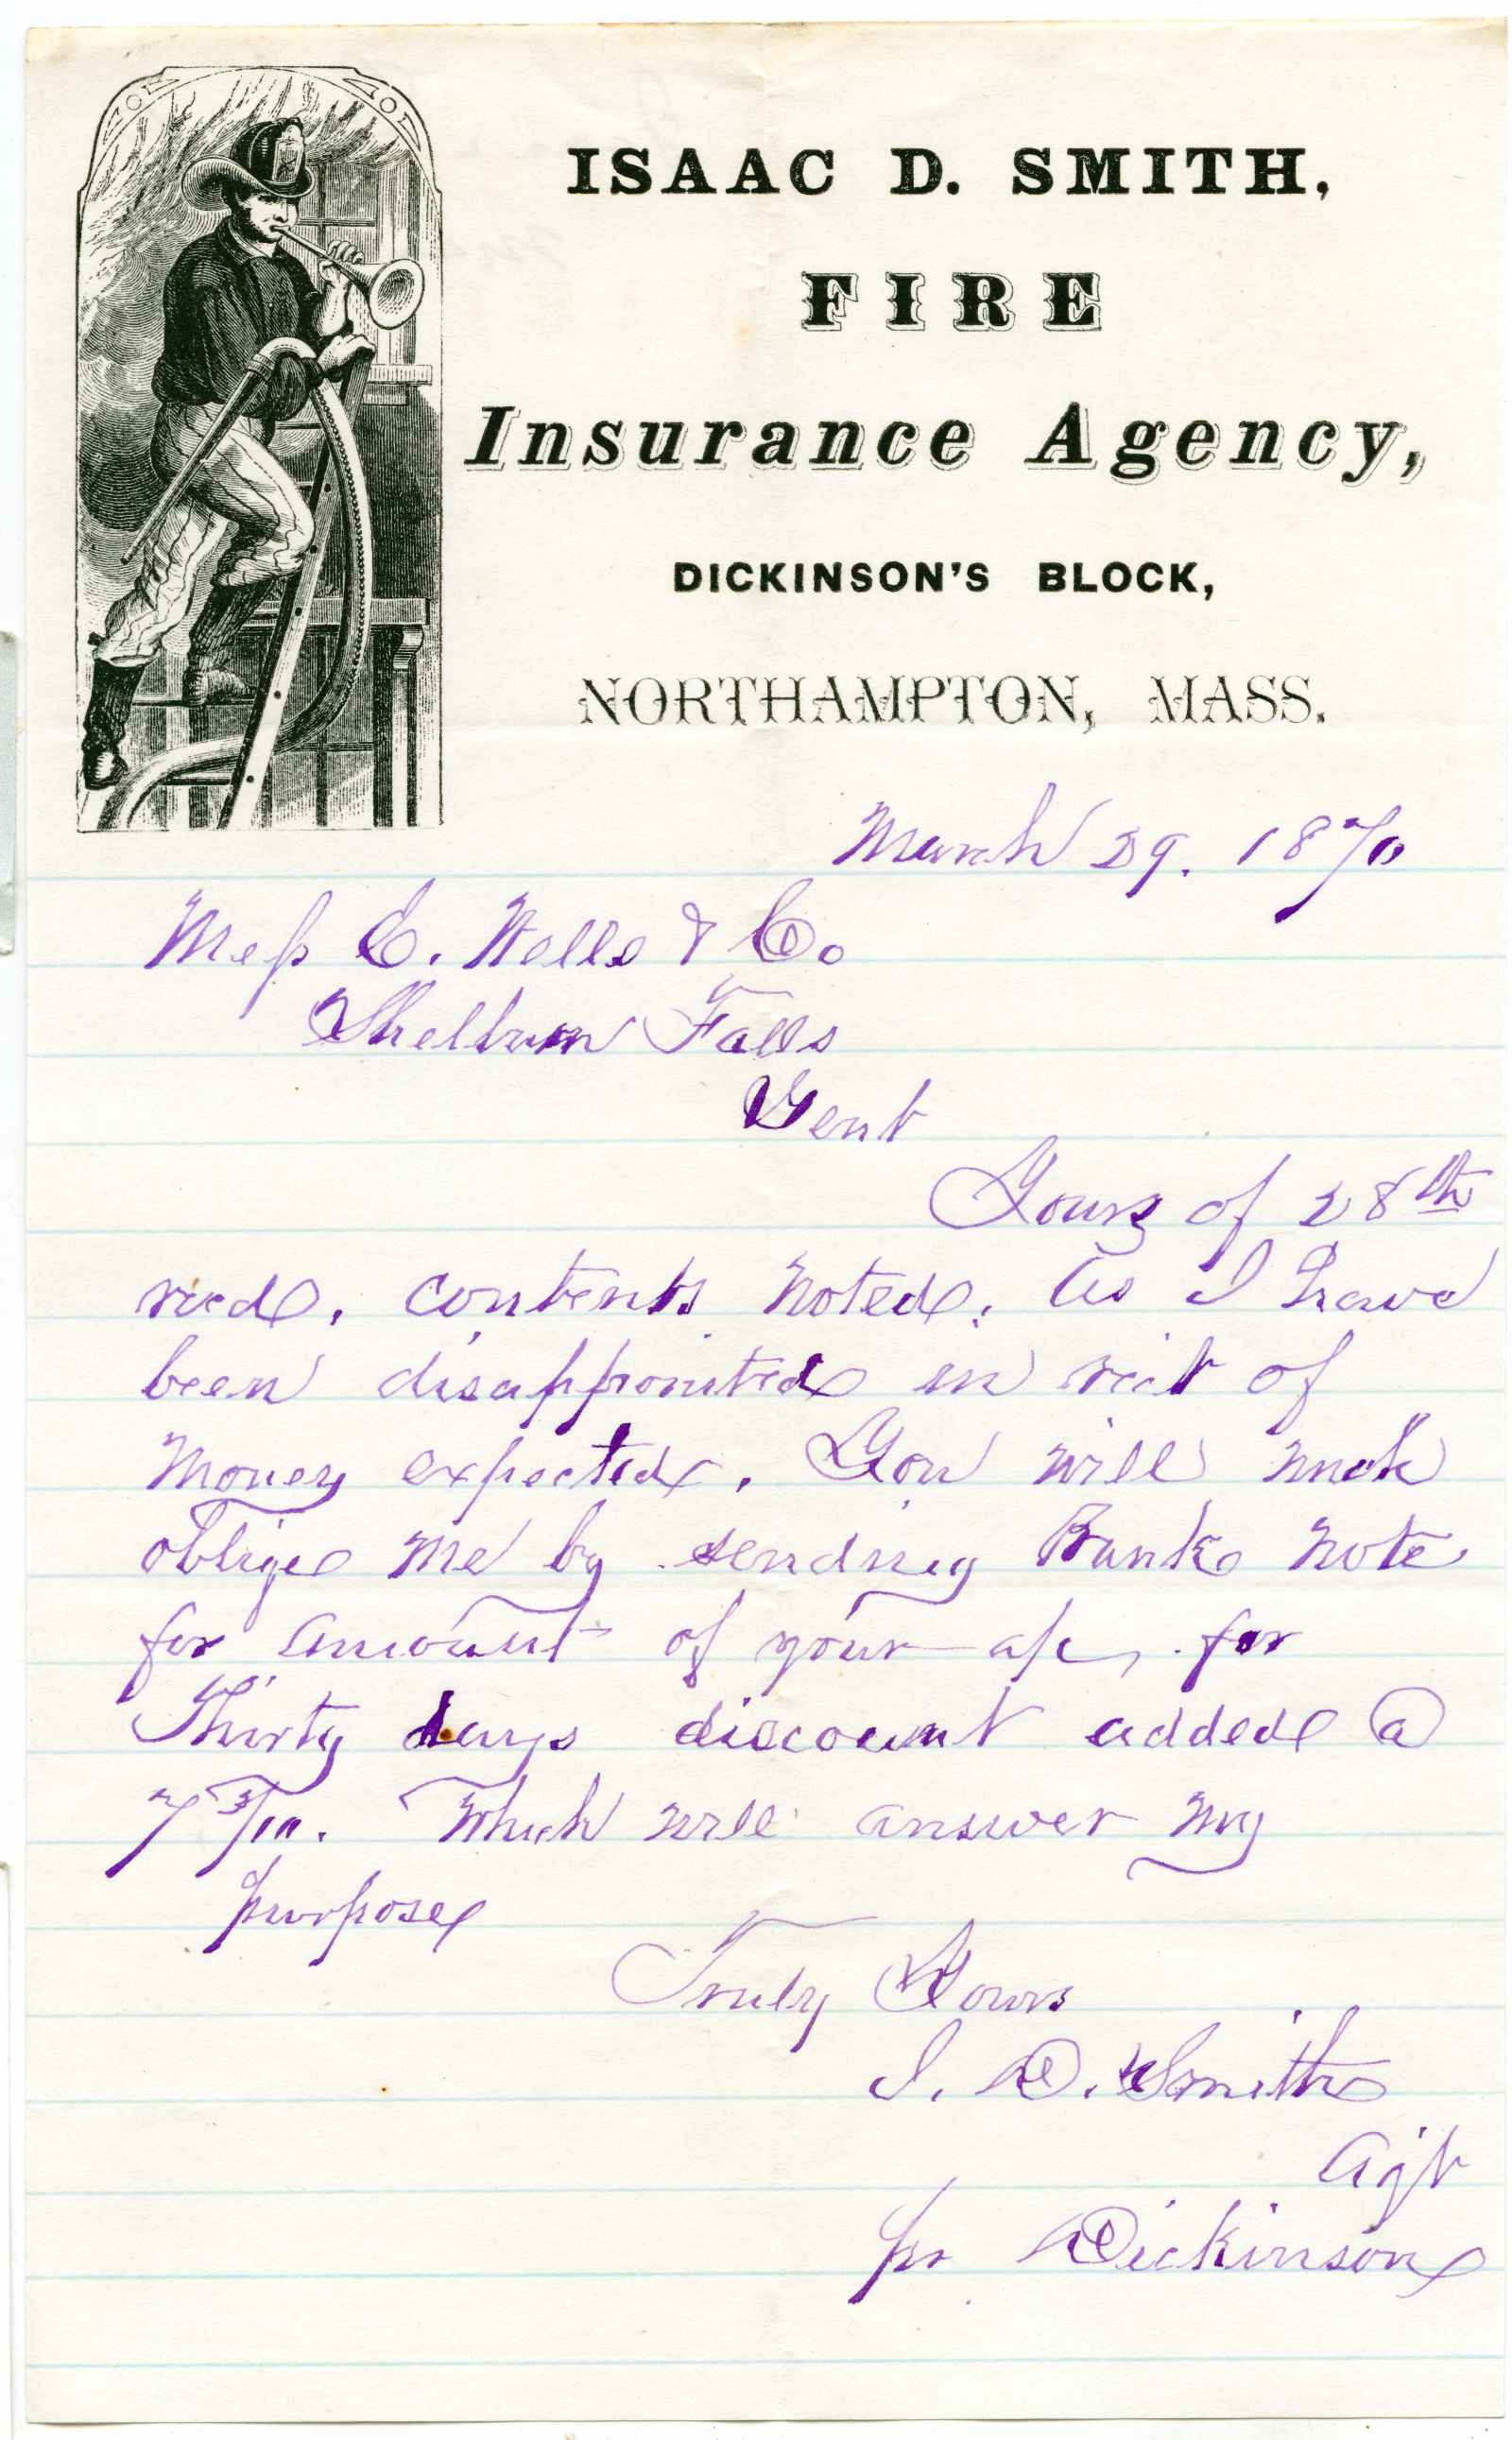 ISAAC D. SMITH,
FIRE
Insurance Agency,
DICKINSON'S BLOCK,
NORTHAMPTON, MASS.
March 29. 1870
Mess C. Wells & Co
Shelburn Falls
Gent
Yours of 28th
recd, contents noted. As I have
been disappointed in rect of
money expected. You will much
oblige me by sending Bank note
for amount of your a/c, for
Thirty days discount added @
7 3/10. Which will answer my
purpose
Truly Yours
I. D. Smith
Agt
per Dickinson